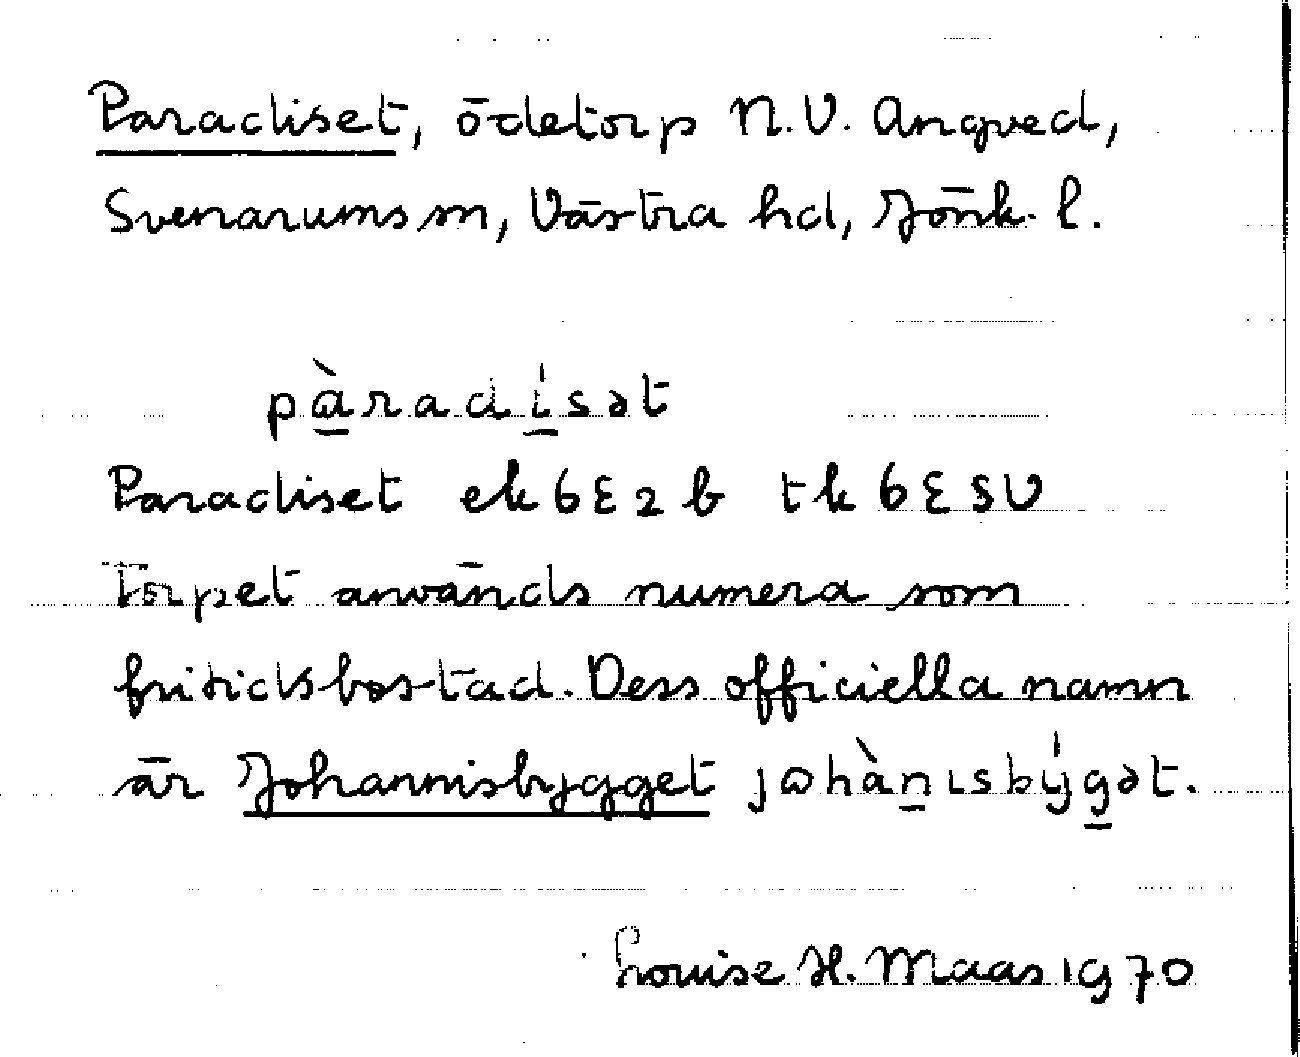 Paradiset, ödetorp N.V. Angved,
Svenarums sn, Västra hd, Jönk. l.
pàradísət
Paradiset ek 6E2b tk 6E5V
Torpet används numera som
fritidsbostad. Dess officiella namn
är Johannisbygget johànısbýgət.
Louise H. Maas 1970